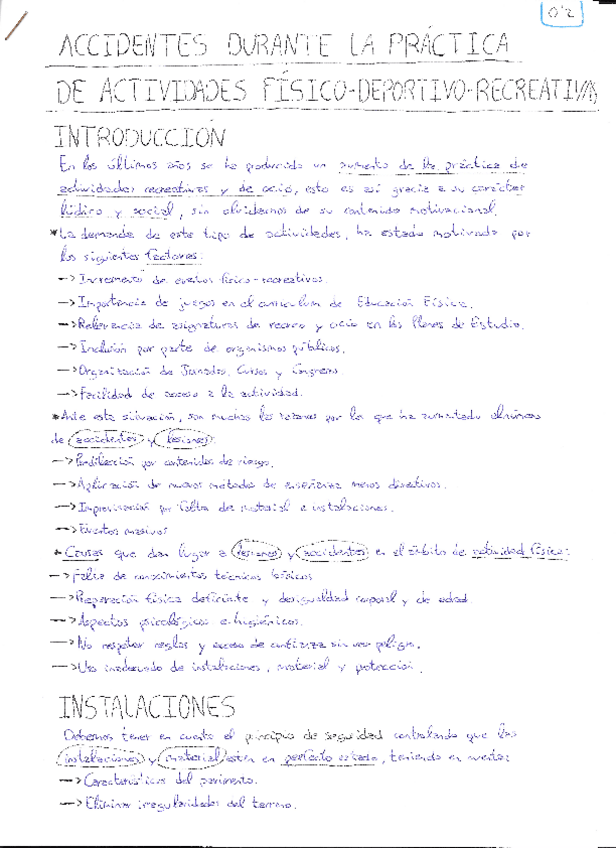 0'2
ACCIDENTES DURANTE LA PRÁCTICA
DE ACTIVIDADES FÍSICO-DEPORTIVO-RECREATIVAS
INTRODUCCIÓN
En los últimos años se ha producido un aumento de la práctica de
actividades recreativas y de ocio, esto es así gracias a su carácter
lúdico y social, sin olvidarnos de su contenido motivacional.
*La demanda de este tipo de actividades, ha estado motivada por
los siguientes factores:
-> Incremento de eventos físico-recreativos.
-> Importancia de juegos en el curriculum de Educación Física.
-> Relevancia de asignaturas de recreo y ocio en los Planes de Estudio.
-> Inclusión por parte de organismos públicos.
-> Organización de Jornadas, Cursos y Congresos.
-> Facilidad de acceso a la actividad.
*Ante esta situación, son muchas las razones por la que ha aumentado el número
de accidentes y lesiones:
-> por contenidos de riesgo.
-> Aplicación de nuevos métodos de enseñanza menos directivos.
-> Improvisación por falta de material e instalaciones.
-> Eventos masivos
* Causas que dan lugar a lesiones y accidentes en el ámbito de actividad física:
-> Falta de conocimientos técnicos básicos
-> Preparación física deficiente y desigualdad corporal y de edad
-> Aspectos psicológicos e higiénicos.
-> No respetar reglas y exceso de confianza sin ver peligro.
-> Uso inadecuado de instalaciones, material y protección.
INSTALACIONES
Debemos tener en cuenta el principio de seguridad controlando que las
instalaciones y material estén en perfecto estado, teniendo en cuenta:
-> Características del pavimento.
-> Eliminar irregularidades del terreno.